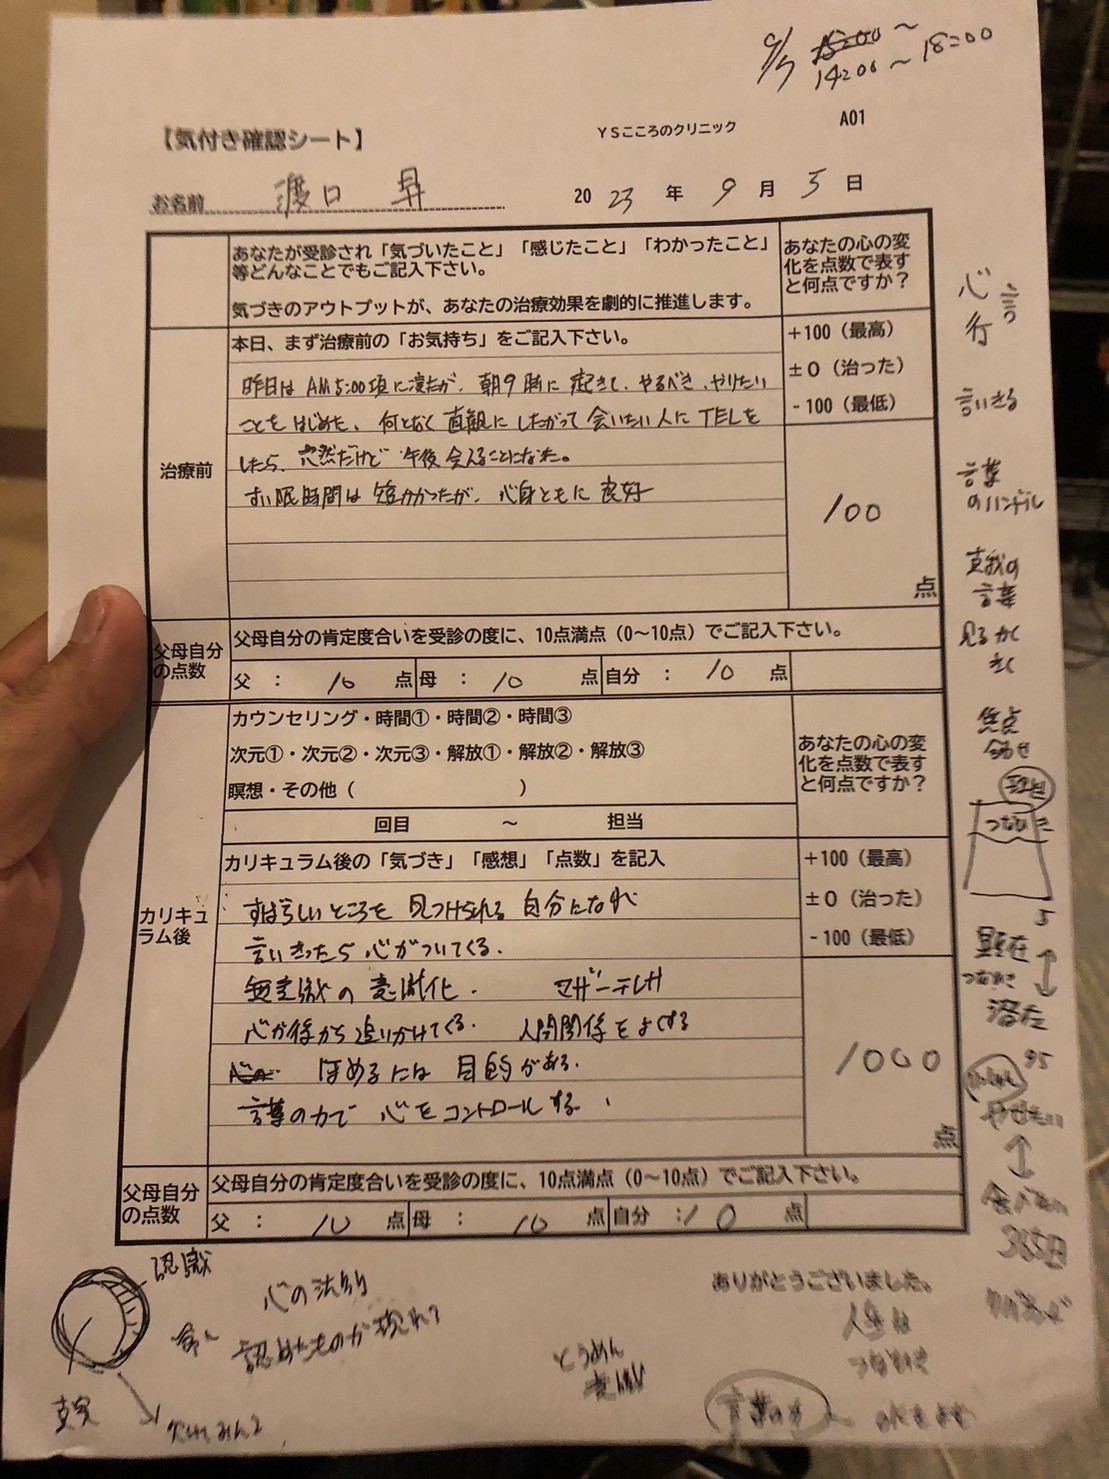 9/7 15:00~
14:00~18:00
A01
YSこころのクリニック
【気付き確認シート】
お名前 渡口 昇
2023年9月5日
あなたが受診され「気づいたこと」「感じたこと」「わかったこと」
等どんなことでもご記入下さい。
気づきのアウトプットが、あなたの治療効果を劇的に推進します。
あなたの心の変
化を点数で表す
と何点ですか？
治療前
本日、まず治療前の「お気持ち」をご記入下さい。
昨日は AM5:00頃に寝たが、朝9時に起きて、やるべき、やりたい
ことをはじめた、何となく直観にしたがって会いたい人にTELを
したら、突然だけど午後会えることになった。
すい眠時間は短かかったが、心身ともに良好
+100（最高）
±0（治った）
-100（最低）
100
点
父母自分
の点数
父母自分の肯定度合いを受診の度に、10点満点（0～10点）でご記入下さい。
父：10点 母：10点 自分：10点
カリキュ
ラム後
カウンセリング・時間①・時間②・時間③
次元①・次元②・次元③・解放①・解放②・解放③
瞑想・その他（ ）
回目 ～ 担当
あなたの心の変
化を点数で表す
と何点ですか？
カリキュラム後の「気づき」「感想」「点数」を記入
すばらしいところを見つけられる自分になれ
言いきったら心がついてくる.
無意識の意識化. マザーテレサ
心が後から追いかけてくる. 人間関係をよくする
ほめるには目的がある.
言葉の力で心をコントロールする.
+100（最高）
±0（治った）
-100（最低）
1000
点
父母自分
の点数
父母自分の肯定度合いを受診の度に、10点満点（0～10点）でご記入下さい。
父：10点 母：10点 自分：10点
ありがとうございました。
心 言
行
言いきる
言葉
のハンドル
真我の
言葉
見るかく
焦点
つなひき
5
顕在
つなひき
潜在
95
やせたい
365日
認識
心の法則
認めたものが現れる
とうめん
意識
真実
人生は
つなひき
言葉の力